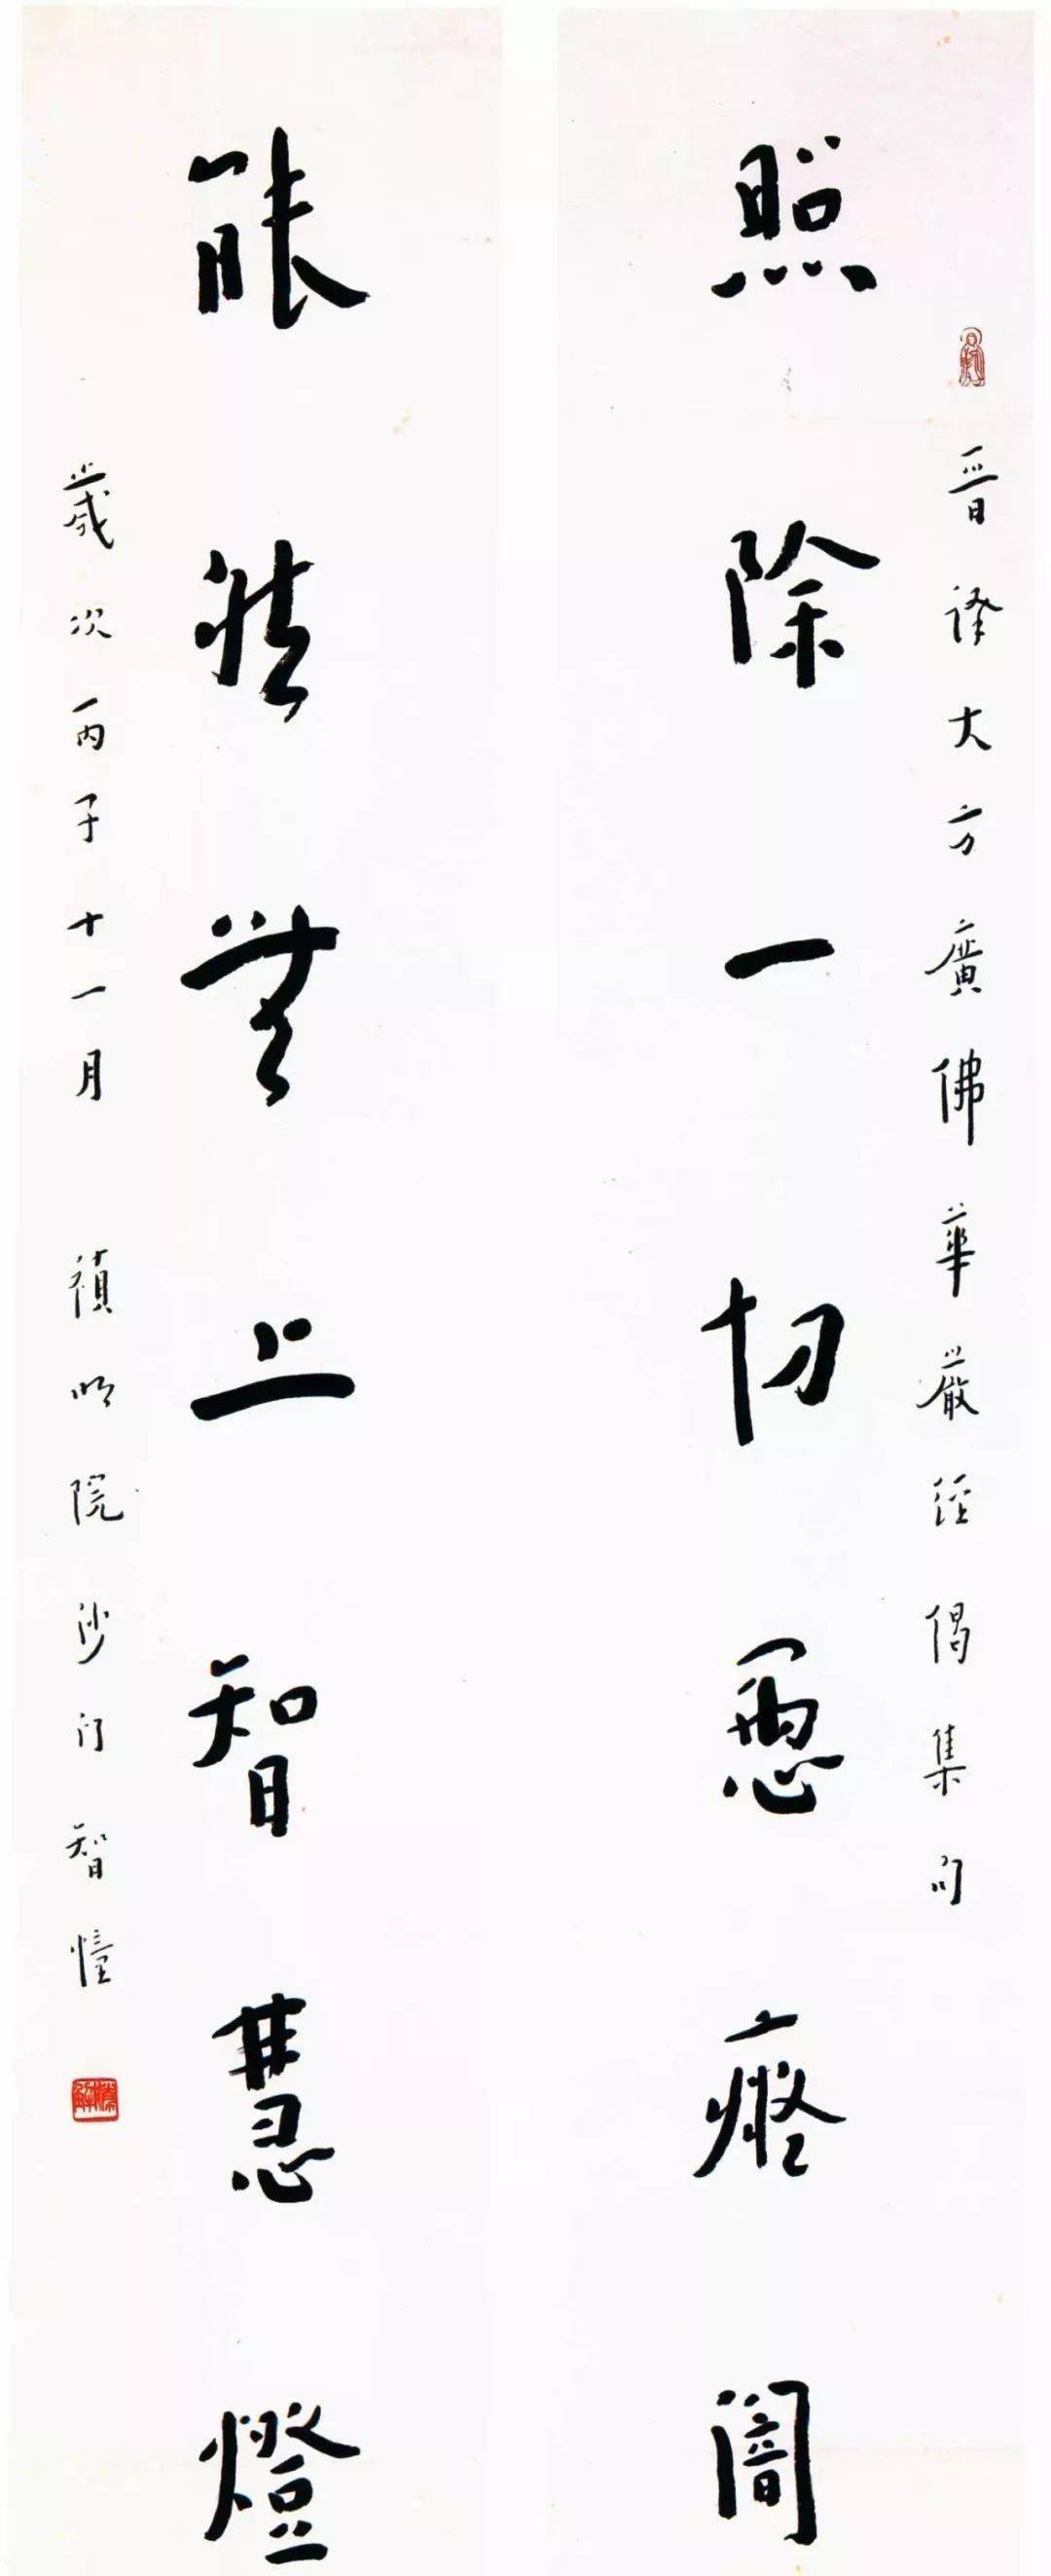 晉譯大方廣佛華嚴經偈集句
照除一切惡癡闇
能然無上智慧燈
歲次丙子十一月 禎明院沙門智幢